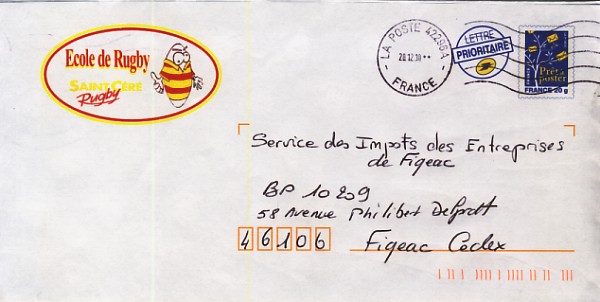 Ecole de Rugby
SAINT CÉRÉ
Rugby
LA POSTE 42286A
28.12.10
FRANCE
LETTRE
PRIORITAIRE
Prêt à
poster
FRANCE 20 g
Service des Impots des Entreprises
de Figeac
BP 10 209
58 Avenue Philibert Delprat
46106 Figeac Cedex